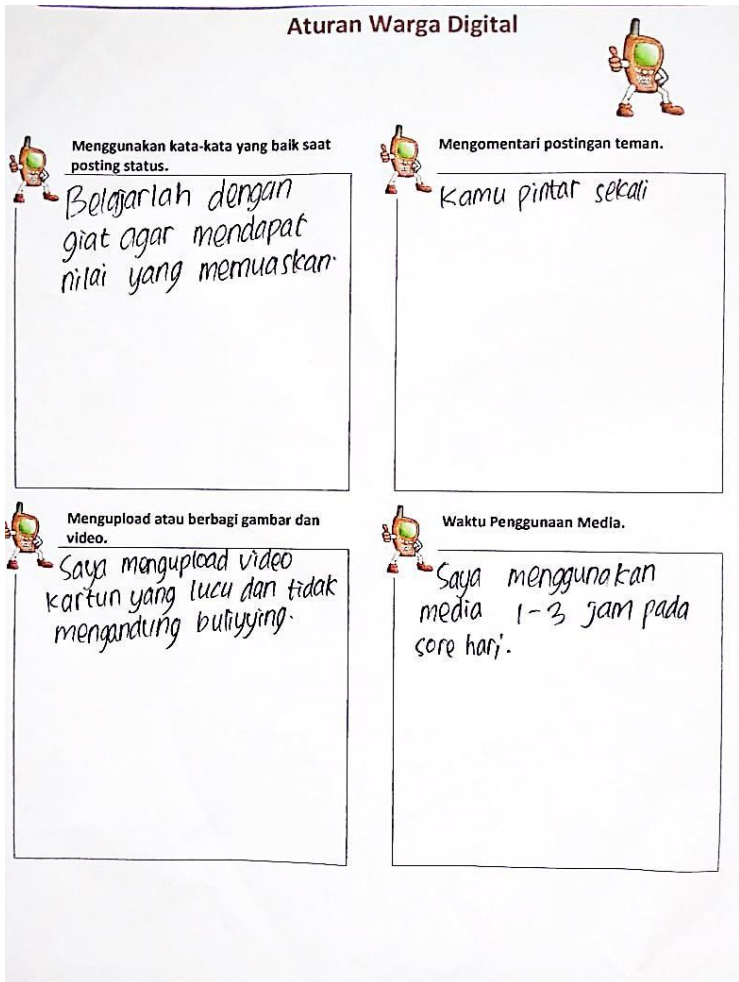 Aturan Warga Digital
Menggunakan kata-kata yang baik saat
posting status.
Belajarlah dengan
giat agar mendapat
nilai yang memuaskan.
Mengomentari postingan teman.
Kamu pintar sekali
Mengupload atau berbagi gambar dan
video.
Saya mengupload video
kartun yang lucu dan tidak
mengandung bullyying.
Waktu Penggunaan Media.
Saya menggunakan
media 1-3 jam pada
sore hari.